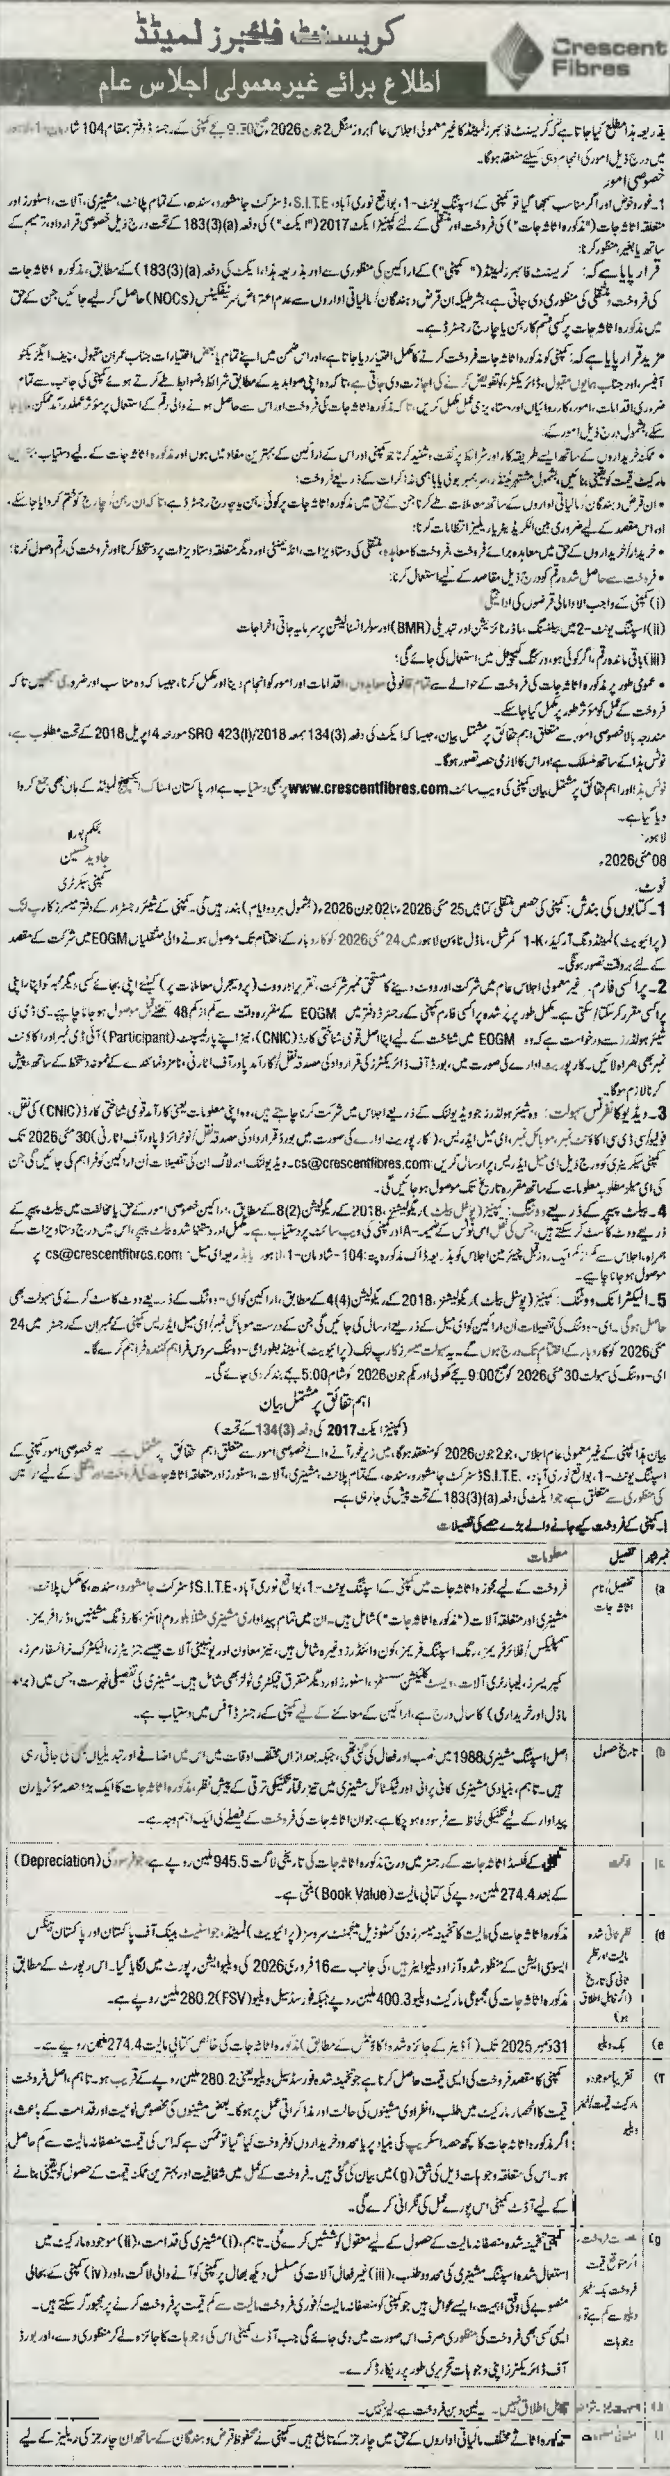 کریسنٹ فائبرز لمیٹڈ
Crescent
Fibres
اطلاع برائے غیر معمولی اجلاس عام
بذریعہ ہذا مطلع کیا جاتا ہے کہ کریسنٹ فائبرز لمیٹڈ کا غیر معمولی اجلاس عام بروز منگل 2 جون 2026ء صبح 9:30 بجے کمپنی کے رجسٹرڈ دفتر بمقام 104 شادمان-1، لاہور
میں درج ذیل امور کی انجام دہی کیلئے منعقد ہوگا۔
خصوصی امور
1۔ غور و خوض اور اگر مناسب سمجھا گیا تو کمپنی کے اسپننگ یونٹ-1، بواقع نوری آباد، S.I.T.E، ڈسٹرکٹ جامشورو، سندھ، کے تمام پلانٹ، مشینری، آلات، اسٹورز اور
متعلقہ اثاثہ جات ("مذکورہ اثاثہ جات") کی فروخت اور منتقلی کے لئے کمپنیز ایکٹ 2017 ("ایکٹ") کی دفعہ (a)(3)183 کے تحت درج ذیل خصوصی قرارداد، ترمیم کے
ساتھ یا بغیر منظور کرنا:
قرار پایا ہے کہ: کریسنٹ فائبرز لمیٹڈ ("کمپنی") کے اراکین کی منظوری سے اور بذریعہ ہذا، ایکٹ کی دفعہ (a)(3)183 کے مطابق، مذکورہ اثاثہ جات
کی فروخت و منتقلی کی منظوری دی جاتی ہے، بشرطیکہ ان قرض دہندگان/مالیاتی اداروں سے عدم اعتراض سرٹیفکیٹس (NOCs) حاصل کر لیے جائیں جن کے حق
میں مذکورہ اثاثہ جات پر کسی قسم کا رہن یا چارج رجسٹرڈ ہے۔
مزید قرار پایا ہے کہ: کمپنی کو مذکورہ اثاثہ جات فروخت کرنے کا مکمل اختیار دیا جاتا ہے، اور اس ضمن میں اپنے تمام یا بعض اختیارات جناب عمران مقبول، چیف ایگزیکٹو
آفیسر، اور جناب ہمایوں مقبول، ڈائریکٹر کو تفویض کرنے کی اجازت دی جاتی ہے، تاکہ وہ اپنی صوابدید کے مطابق شرائط و ضوابط طے کرتے ہوئے کمپنی کی جانب سے تمام
ضروری اقدامات، امور، کارروائیاں اور دستاویزی عمل مکمل کریں، تاکہ مذکورہ اثاثہ جات کی فروخت اور اس سے حاصل ہونے والی رقم کے استعمال پر مؤثر عملدرآمد ممکن بنایا جا
سکے، بشمول درج ذیل امور کے۔
• ممکنہ خریداروں کے ساتھ ایسے طریقہ کار اور شرائط پر گفت و شنید کرنا جو کمپنی اور اس کے اراکین کے بہترین مفاد میں ہوں اور مذکورہ اثاثہ جات کے لیے دستیاب بہترین
مارکیٹ قیمت کو یقینی بنائیں، بشمول مشتہر ٹینڈر، سربمہر بولی یا باہمی مذاکرات کے ذریعے فروخت؛
• ان قرض دہندگان/مالیاتی اداروں کے ساتھ معاملات طے کرنا جن کے حق میں مذکورہ اثاثہ جات پر کوئی رہن یا چارج رجسٹرڈ ہے، تاکہ ان رہن/چارج کو ختم کروایا جا سکے،
اور اس مقصد کے لیے ضروری بین الکریڈیٹرز یا ریلیز انتظامات کرنا؛
• خریدار/خریداروں کے حق میں معاہدہ برائے فروخت، فروخت کا معاہدہ، منتقلی کی دستاویزات، انڈیمنٹی اور دیگر متعلقہ دستاویزات پر دستخط کرنا اور فروخت کی رقم وصول کرنا؛
• فروخت سے حاصل شدہ رقم کو درج ذیل مقاصد کے لیے استعمال کرنا:
(i) کمپنی کے واجب الادا مالی قرضوں کی ادائیگی
(ii) اسپننگ یونٹ-2 میں بیلنسنگ، ماڈرنائزیشن اور تبدیلی (BMR) اور سولر انسٹالیشن پر سرمایہ جاتی اخراجات
(iii) باقی ماندہ رقم، اگر کوئی ہو، ورکنگ کیپیٹل میں استعمال کی جائے گی؛
• عمومی طور پر مذکورہ اثاثہ جات کی فروخت کے حوالے سے تمام قانونی معاہدوں، اقدامات اور امور کو انجام دینا اور مکمل کرنا، جیسا کہ وہ مناسب اور ضروری سمجھیں تاکہ
فروخت کے عمل کو مؤثر طور پر مکمل کیا جا سکے۔
مندرجہ بالا خصوصی امور سے متعلق اہم حقائق پر مشتمل بیان، جیسا کہ ایکٹ کی دفعہ (3)134 بمعہ SRO 423(I)/2018 مورخہ 4 اپریل 2018 کے تحت مطلوب ہے،
نوٹس ہذا کے ساتھ منسلک ہے؛ اور اس کا لازمی حصہ تصور ہوگا۔
نوٹس ہذا اور اہم حقائق پر مشتمل بیان کمپنی کی ویب سائٹ www.crescentfibres.com پر بھی دستیاب ہے اور پاکستان اسٹاک ایکسچینج لمیٹڈ کے ہاں بھی جمع کروا
دیا گیا ہے۔
بحکم بورڈ
لاہور:
جاوید حسین
08 مئی 2026ء
کمپنی سیکرٹری
نوٹ:
1۔ کتابوں کی بندش: کمپنی کی حصص منتقلی کتابیں 25 مئی 2026ء تا 02 جون 2026ء (بشمول ہر دو ایام) بند رہیں گی۔ کمپنی کے شیئر رجسٹرار کے دفتر میسرز کارپ لنک
(پرائیویٹ) لمیٹڈ ونگ آرکیڈ، K-1 کمرشل، ماڈل ٹاؤن لاہور میں 24 مئی 2026 کو کاروبار کے اختتام تک موصول ہونے والی منتقلیاں EOGM میں شرکت کے مقصد
کے لئے بروقت تصور ہونگی۔
2۔ پراکسی فارم: غیر معمولی اجلاس عام میں شرکت اور ووٹ دینے کا مستحق ممبر شرکت، تقریر اور ووٹ (پروسیجرل معاملات پر) کیلئے اپنی بجائے کسی دیگر ممبر کو اپنا/اپنی
پراکسی مقرر کر سکتا/سکتی ہے۔ مکمل طور پر پر شدہ پراکسی فارم کمپنی کے رجسٹرڈ دفتر میں EOGM کے مقررہ وقت سے کم از کم 48 گھنٹے قبل موصول ہو جانا چاہیے۔ سی ڈی سی
شیئر ہولڈرز سے درخواست ہے کہ وہ EOGM میں شناخت کے لیے اپنا اصل قومی شناختی کارڈ (CNIC)، نیز اپنے پارٹیسپنٹ (Participant) آئی ڈی نمبر اور اکاؤنٹ
نمبر بھی ہمراہ لائیں۔ کارپوریٹ ادارے کی صورت میں، بورڈ آف ڈائریکٹرز کی قرارداد کی مصدقہ نقل/کارآمد پاور آف اٹارنی، نامزد نمائندے کے نمونہ دستخط کے ساتھ، پیش
کرنا لازم ہوگا۔
3۔ ویڈیو کانفرنس سہولت: وہ شیئر ہولڈرز جو ویڈیو لنک کے ذریعے اجلاس میں شرکت کرنا چاہتے ہیں، وہ اپنی معلومات یعنی کارآمد قومی شناختی کارڈ (CNIC) کی نقل،
فولیو/سی ڈی سی اکاؤنٹ نمبر، موبائل نمبر، ای میل ایڈریس، (کارپوریٹ ادارے کی صورت میں بورڈ قرارداد کی مصدقہ نقل/نوٹرائزڈ پاور آف اٹارنی) 30 مئی 2026 تک
کمپنی سیکرٹری کو درج ذیل ای میل ایڈریس پر ارسال کریں: cs@crescentfibres.com۔ ویڈیو لنک اور لاگ اِن کی تفصیلات اُن اراکین کو فراہم کی جائیں گی جن
کی ای میلز مطلوبہ معلومات کے ساتھ مقررہ تاریخ تک موصول ہو جائیں گی۔
4۔ بیلٹ پیپر کے ذریعے ووٹنگ: کمپنیز (پوسٹل بیلٹ) ریگولیشنز، 2018 کے ریگولیشن (2)8 کے مطابق، اراکین خصوصی امور کے حق یا مخالفت میں بیلٹ پیپر کے
ذریعے ووٹ کاسٹ کر سکتے ہیں، جس کی نقل اس نوٹس کے ضمیمہ-A اور کمپنی کی ویب سائٹ پر دستیاب ہے۔ مکمل اور دستخط شدہ بیلٹ پیپر، اس میں درج دستاویزات کے
ہمراہ، اجلاس سے کم از کم ایک روز قبل چیئرمین اجلاس کو بذریعہ ڈاک مذکورہ پتہ: 104-شادمان-1، لاہور یا بذریعہ ای میل: cs@crescentfibres.com پر
موصول ہو جانا چاہیے۔
5۔ الیکٹرانک ووٹنگ: کمپنیز (پوسٹل بیلٹ) ریگولیشنز، 2018 کے ریگولیشن (4)4 کے مطابق، اراکین کو ای-ووٹنگ کے ذریعے ووٹ کاسٹ کرنے کی سہولت بھی
حاصل ہوگی۔ ای-ووٹنگ کی تفصیلات اُن اراکین کو ای میل کے ذریعے ارسال کی جائیں گی جن کے درست موبائل نمبر/ای میل ایڈریس کمپنی کے ممبران کے رجسٹر میں 24
مئی 2026 کو کاروبار کے اختتام تک درج ہوں گے۔ یہ سہولت میسرز کارپ لنک (پرائیویٹ) لمیٹڈ بطور ای-ووٹنگ سروس فراہم کنندہ فراہم کرے گا۔
ای-ووٹنگ کی سہولت 30 مئی 2026 کو صبح 9:00 بجے کھولی اور یکم جون 2026 کو شام 5:00 بجے بند کر دی جائے گی۔
اہم حقائق پر مشتمل بیان
(کمپنیز ایکٹ 2017 کی دفعہ (3)134 کے تحت)
بیان ہذا کمپنی کے غیر معمولی عام اجلاس، جو 2 جون 2026 کو منعقد ہوگا، میں زیر غور آنے والے خصوصی امور سے متعلق اہم حقائق پر مشتمل ہے۔ یہ خصوصی امور کمپنی کے
اسپننگ یونٹ-1، بواقع نوری آباد، S.I.T.E ڈسٹرکٹ جامشورو، سندھ، کے تمام پلانٹ، مشینری، آلات، اسٹورز اور متعلقہ اثاثہ جات کی فروخت اور منتقلی کے لیے اراکین
کی منظوری سے متعلق ہے، جو ایکٹ کی دفعہ (a)(3)183 کے تحت پیش کی جا رہی ہے۔
ا۔ کمپنی کے فروخت کیے جانے والے بڑے حصے کی تفصیلات
نمبر شمار تفصیل معلومات
(a تفصیل/نام اثاثہ جات
فروخت کے لیے مجوزہ اثاثہ جات میں کمپنی کے اسپننگ یونٹ-1، بواقع نوری آباد، S.I.T.E ڈسٹرکٹ جامشورو، سندھ، کا مکمل پلانٹ،
مشینری اور متعلقہ آلات ("مذکورہ اثاثہ جات") شامل ہیں۔ ان میں تمام پیداواری مشینری مثلاً بلو روم لائنز، کارڈنگ مشینیں، ڈرا فریمز،
سمپلیکس/فلائر فریمز، رنگ اسپننگ فریمز، کون وائنڈرز وغیرہ شامل ہیں، نیز معاون اور یوٹیلیٹی آلات جیسے جنریٹرز، الیکٹرک ٹرانسفارمرز،
کمپریسرز، لیبارٹری آلات، ویسٹ کلیکشن سسٹمز، اسٹورز اور دیگر متفرق فیکٹری ٹولز بھی شامل ہیں۔ مشینری کی تفصیلی فہرست، جس میں (میک،
ماڈل اور خریداری) کا سال درج ہے، اراکین کے معائنے کے لیے کمپنی کے رجسٹرڈ آفس میں دستیاب ہے۔
(b تاریخ حصول
اصل اسپننگ مشینری 1988 میں نصب اور فعال کی گئی تھی، جبکہ بعد ازاں مختلف اوقات میں اس میں اضافے اور تبدیلیاں بھی کی جاتی رہی
ہیں۔ تاہم، بنیادی مشینری کافی پرانی اور ٹیکسٹائل مشینری میں تیز رفتار تکنیکی ترقی کے پیش نظر، مذکورہ اثاثہ جات کا ایک بڑا حصہ مؤثر یارن
پیداوار کے لیے تکنیکی لحاظ سے فرسودہ ہو چکا ہے، جو ان اثاثہ جات کی فروخت کے فیصلے کی ایک اہم وجہ ہے۔
کمپنی کے فکسڈ اثاثہ جات کے رجسٹر میں درج مذکورہ اثاثہ جات کی تاریخی لاگت 945.5 ملین روپے ہے، جو فرسودگی (Depreciation)
کے بعد 274.4 ملین روپے کی کتابی مالیت (Book Value) بنتی ہے۔
(d نظر ثانی شدہ مالیت اور نظر ثانی کی تاریخ (اگر قابل اطلاق ہو)
مذکورہ اثاثہ جات کی مالیت کا تخمینہ میسرز دی کسٹوڈیل مینجمنٹ سروسز (پرائیویٹ) لمیٹڈ، جو اسٹیٹ بینک آف پاکستان اور پاکستان بینکس
ایسوسی ایشن کے منظور شدہ آزاد ویلیو ایٹر ہیں، کی جانب سے 16 فروری 2026 کی ویلیو ایشن رپورٹ میں لگایا گیا۔ اس رپورٹ کے مطابق
مذکورہ اثاثہ جات کی مجموعی مارکیٹ ویلیو 400.3 ملین روپے جبکہ فورسڈ سیل ویلیو (FSV) 280.2 ملین روپے ہے۔
(e بک ویلیو
31 دسمبر 2025 تک (آڈیٹر کے جائزہ شدہ اکاؤنٹس کے مطابق) مذکورہ اثاثہ جات کی خالص کتابی مالیت 274.4 ملین روپے ہے۔
(f تقریباً موجودہ مارکیٹ قیمت/فیئر ویلیو
کمپنی کا مقصد فروخت کی ایسی قیمت حاصل کرنا ہے جو تخمینہ شدہ فورسڈ سیل ویلیو یعنی 280.2 ملین روپے کے قریب ہو۔ تاہم، اصل فروخت
قیمت کا انحصار مارکیٹ میں طلب، انفرادی مشینوں کی حالت اور مذاکراتی عمل پر ہوگا۔ بعض مشینوں کی مخصوص نوعیت اور قدامت کے باعث،
اگر مذکورہ اثاثہ جات کا کچھ حصہ اسکریپ کی بنیاد پر یا محدود خریداروں کو فروخت کیا گیا تو ممکن ہے کہ اس کی قیمت منصفانہ مالیت سے کم حاصل
ہو۔ اس کی متعلقہ وجوہات ذیل کی شق (g) میں بیان کی گئی ہیں۔ فروخت کے عمل میں شفافیت اور بہترین ممکنہ قیمت کے حصول کو یقینی بنانے
کے لیے آڈٹ کمیٹی اس پورے عمل کی نگرانی کرے گی۔
(g
کمپنی تخمینہ شدہ منصفانہ مالیت کے حصول کے لیے معقول کوششیں کرے گی۔ تاہم، (i) مشینری کی قدامت، (ii) موجودہ مارکیٹ میں
استعمال شدہ اسپننگ مشینری کی محدود طلب، (iii) غیر فعال آلات کی مسلسل دیکھ بھال پر کمپنی کو آنے والی لاگت، اور (iv) کمپنی کے بحالی
منصوبے کی وقتی اہمیت، ایسے عوامل ہیں جو کمپنی کو منصفانہ مالیت/فوری فروخت مالیت سے کم قیمت پر فروخت کرنے پر مجبور کر سکتے ہیں۔
ایسی کسی بھی فروخت کی منظوری صرف اس صورت میں دی جائے گی جب آڈٹ کمیٹی اس کی وجوہات کا جائزہ لے کر منظوری دے، اور بورڈ
آف ڈائریکٹرز اپنی وجوہات تحریری طور پر ریکارڈ کرے۔
قابل اطلاق نہیں۔ یہ لین دین فروخت ہے، لیز نہیں۔
مذکورہ اثاثے مختلف مالیاتی اداروں کے حق میں چارجز کے تابع ہیں۔ کمپنی نے محفوظ قرض دہندگان کے ساتھ ان چارجز کی ریلیز کے لیے